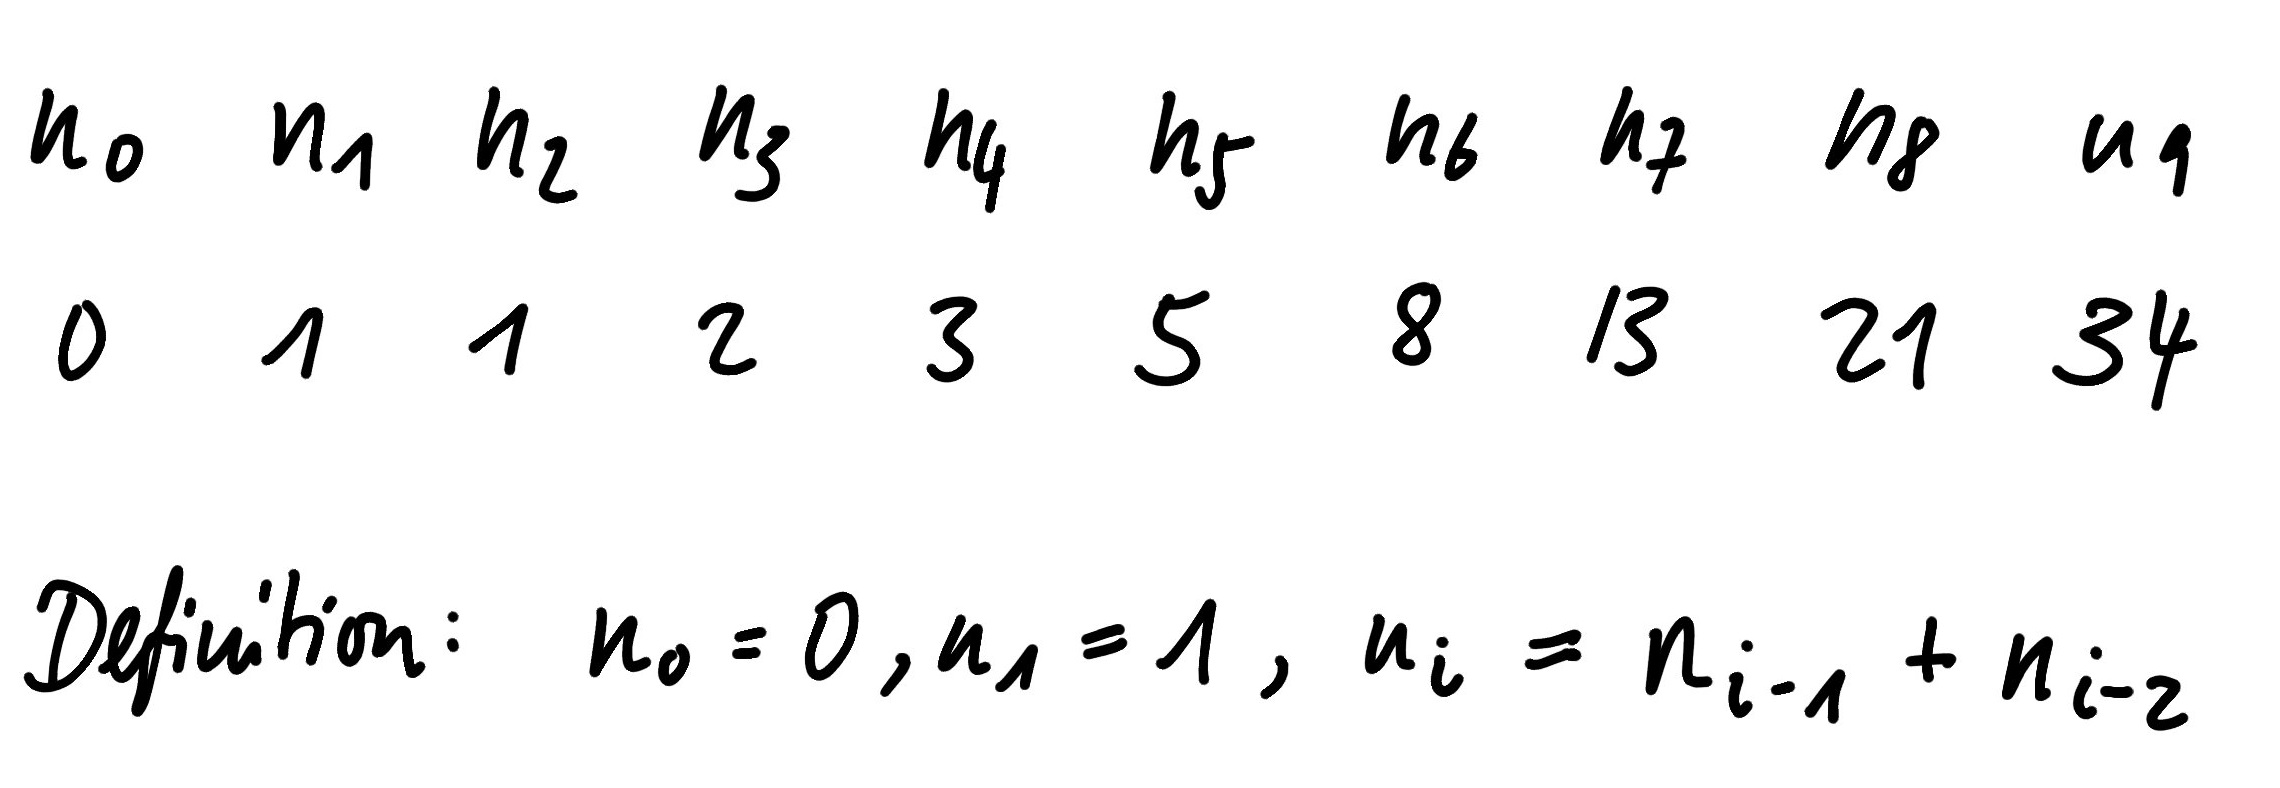 n₀ n₁ n₂ n₃ n₄ n₅ n₆ n₇ n₈ n₉
0 1 1 2 3 5 8 13 21 34
Definition: n₀ = 0, n₁ = 1, nᵢ = nᵢ₋₁ + nᵢ₋₂